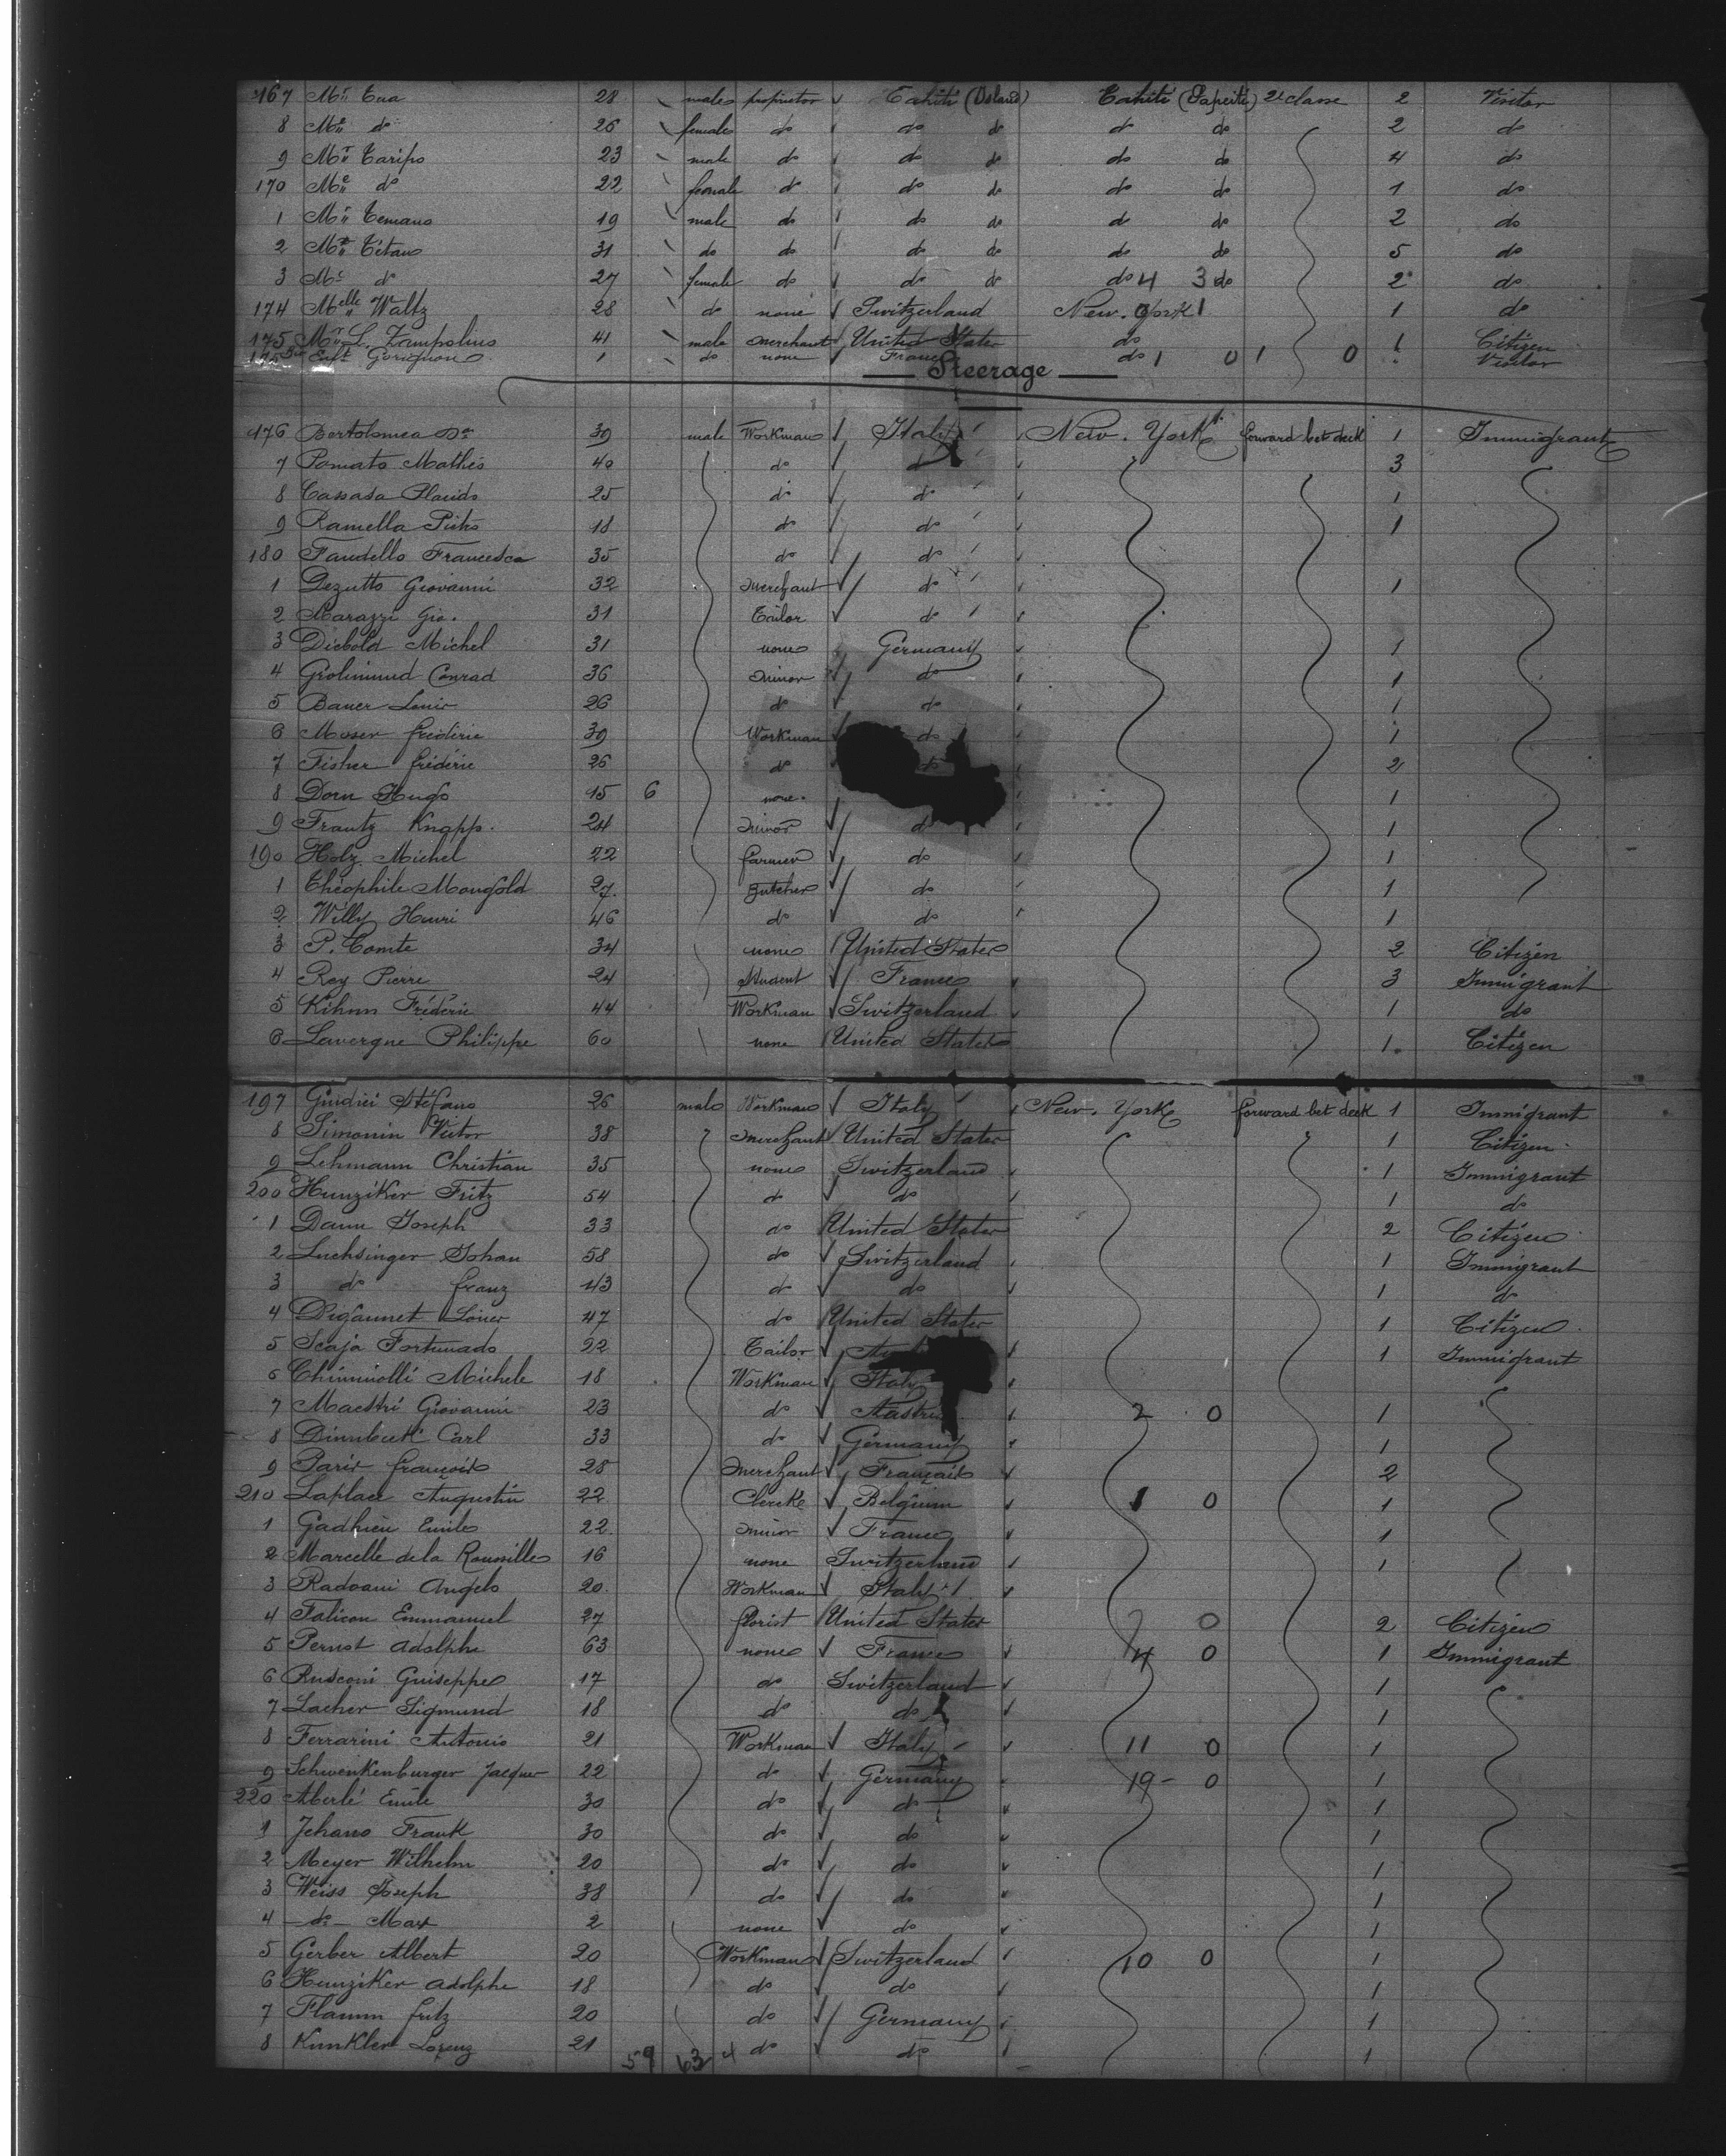 167 Mr Tua 28 male proprietor Tahiti (Island) Tahiti (Papeiti) 2d classe 2 Visitor
8 Me do 26 female do do do do do 2 do
9 Mr Taripo 23 male do do do do do 4 do
170 Me do 22 female do do do do do 1 do
1 Mr Temano 19 male do do do do do 2 do
2 Mr Titano 31 do do do do do do 5 do
3 Me do 27 female do do do do 4 3 do 2 do
174 Melle Waltz 28 do none Switzerland New. York 1 1 do
175 Mr L. Zampolino 41 male merchant United States do 1 Citizen
175 Enft Gorignon 1 do none France do 1 0 1 0 Visitor
Steerage
176 Bartolomea 39 male Workman Italy New. York forward bet deck 1 Immigrant
7 Pomato Mathis 40 do do 3
8 Cassada Placido 25 do do 1
9 Ramella 18 do do 1
180 Fandello Francesca 35 do do
1 Dezutto Giovanni 32 merchant do 1
2 Marazzi Gio. 31 Tailor do
3 Diebold Michel 31 none Germany 1
4 Grolimund Conrad 36 minor do 1
5 Bauer Louis 26 do do 1
6 Moser frédéric 39 Workman do 1
7 Fisher frédéric 26 do do 2
8 Dorn Hugo 15 6 none. 1
9 Frantz Knapp. 24 minor do 1
190 Holz Michel 22 farmer do 1
1 Théophile Mongold 27. butcher do 1
2 Willy Henri 46 do do 1
3 P. Comte 34 none United States 2 Citizen
4 Rey Pierre 24 Student France 3 Immigrant
5 Kihnn Frédéric 44 Workman Switzerland 1 do
6 Lavergne Philippe 60 none United States 1. Citizen
197 Giudici Stéfano 26 male Workman Italy New. York forward bet deck 1 Immigrant
8 Simonin Victor 38 merchant United States 1 Citizen
9 Lehmann Christian 35 none Switzerland 1 Immigrant
200 Hunziker Fritz 54 do do 1 do
1 Daum Joseph 33 do United States 2 Citizen
2 Luchsinger Johan 58 do Switzerland 1 Immigrant
3 do franz 43 do do 1 do
4 47 do United States 1 Citizen
5 Scaja Fortunado 22 Tailor 1 Immigrant
6 Chiminolli Michele 18 Workman Italy
7 Maestri Giovanni 23 do Austria 2 0 1
8 Dinnbeck Carl 33 do Germany 1
9 Paris françois 28 merchant Français 2
210 Laplace Augustin 22 Clerke Belgium 1 0 1
1 Gadhieu Emile 22 minor France 1
2 Marcelle de la Roussille 16 none Switzerland 1
3 Radoani Angelo 20. Workman Italy
4 Falicon Emmanuel 27 florist United States 0 2 Citizen
5 Pernot Adolphe 63 none France 4 0 1 Immigrant
6 Rusconi Guiseppe 17 do Switzerland 1
7 Lacher Sigmund 18 do do 1
8 Ferrarini Antonio 21 Workman Italy 11 0 1
9 Schwenkenburger Jacques 22 do Germany 19 - 0 1
220 Aberlé Emile 30 do do 1
1 Jehano Frank 30 do do 1
2 Meyer Wilhelm 20 do do 1
3 Weiss Joseph 38 do do 1
4 - do - Max 2 none do 1
5 Gerber Albert 20 Workman Switzerland 10 0 1
6 Hunziker Adolphe 18 do do 1
7 Flamm fritz 20 do Germany 1
8 Kunkler Lorenz 21 59 63 4 do do 1